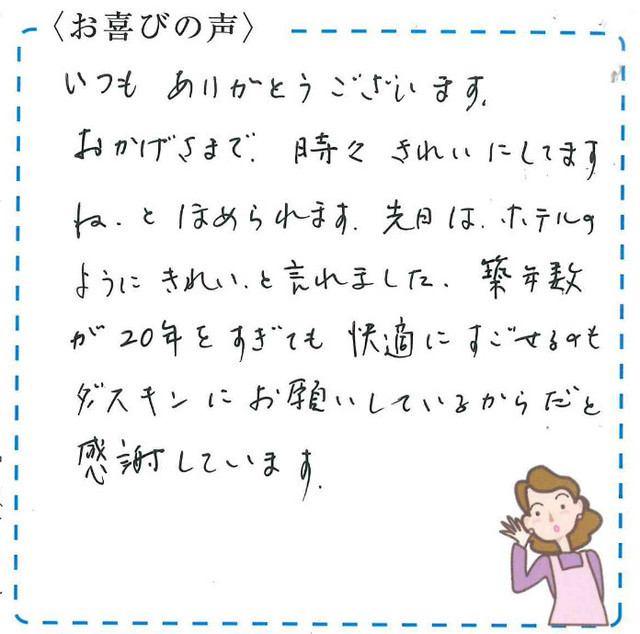 〈お喜びの声〉
いつも ありがとうございます。
おかげさまで、時々 きれいにしてます
ね、と ほめられます。先日は、ホテルの
ように きれい、と言れました。築年数
が 20年をすぎても 快適に すごせるのも
ダスキンに お願いしているからだと
感謝しています。